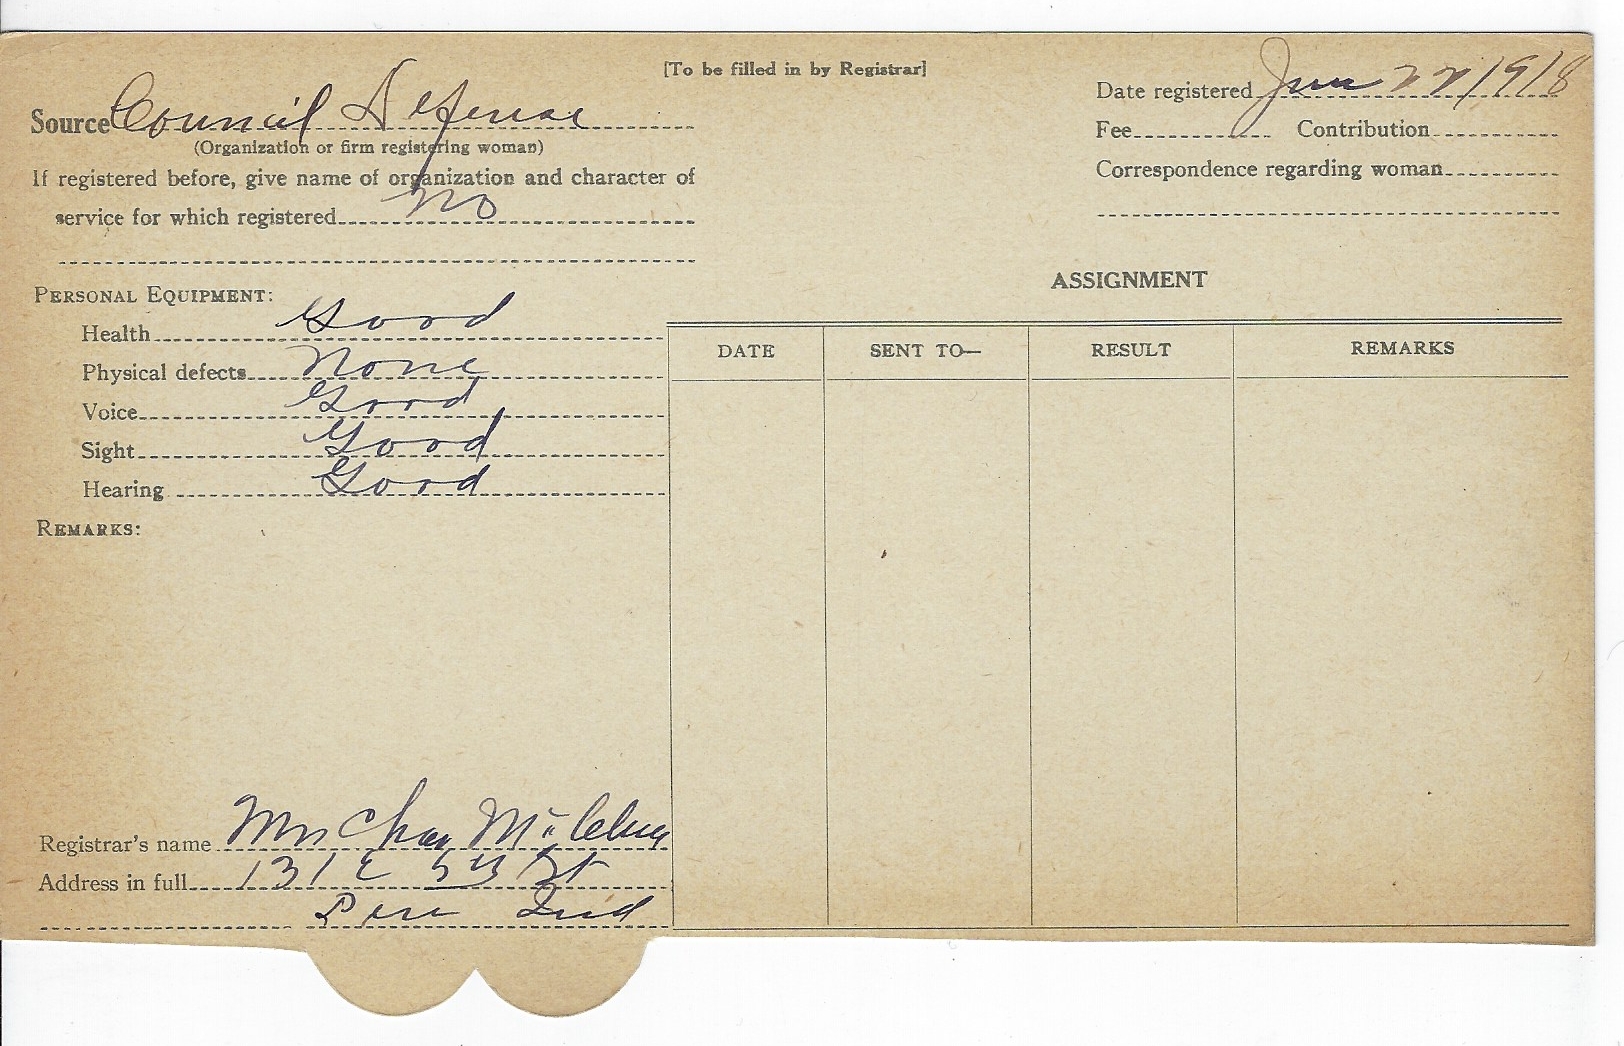 [To be filled in by Registrar]
Source Council Defense
(Organization or firm registering woman)
If registered before, give name of organization and character of
service for which registered No
Date registered Jun 22 1918
Fee Contribution
Correspondence regarding woman
PERSONAL EQUIPMENT:
Health Good
Physical defects None
Voice Good
Sight Good
Hearing Good
REMARKS:
ASSIGNMENT
DATE SENT TO— RESULT REMARKS
Registrar's name Mrs Chas
Address in full 131 E 5th St
Peru Ind